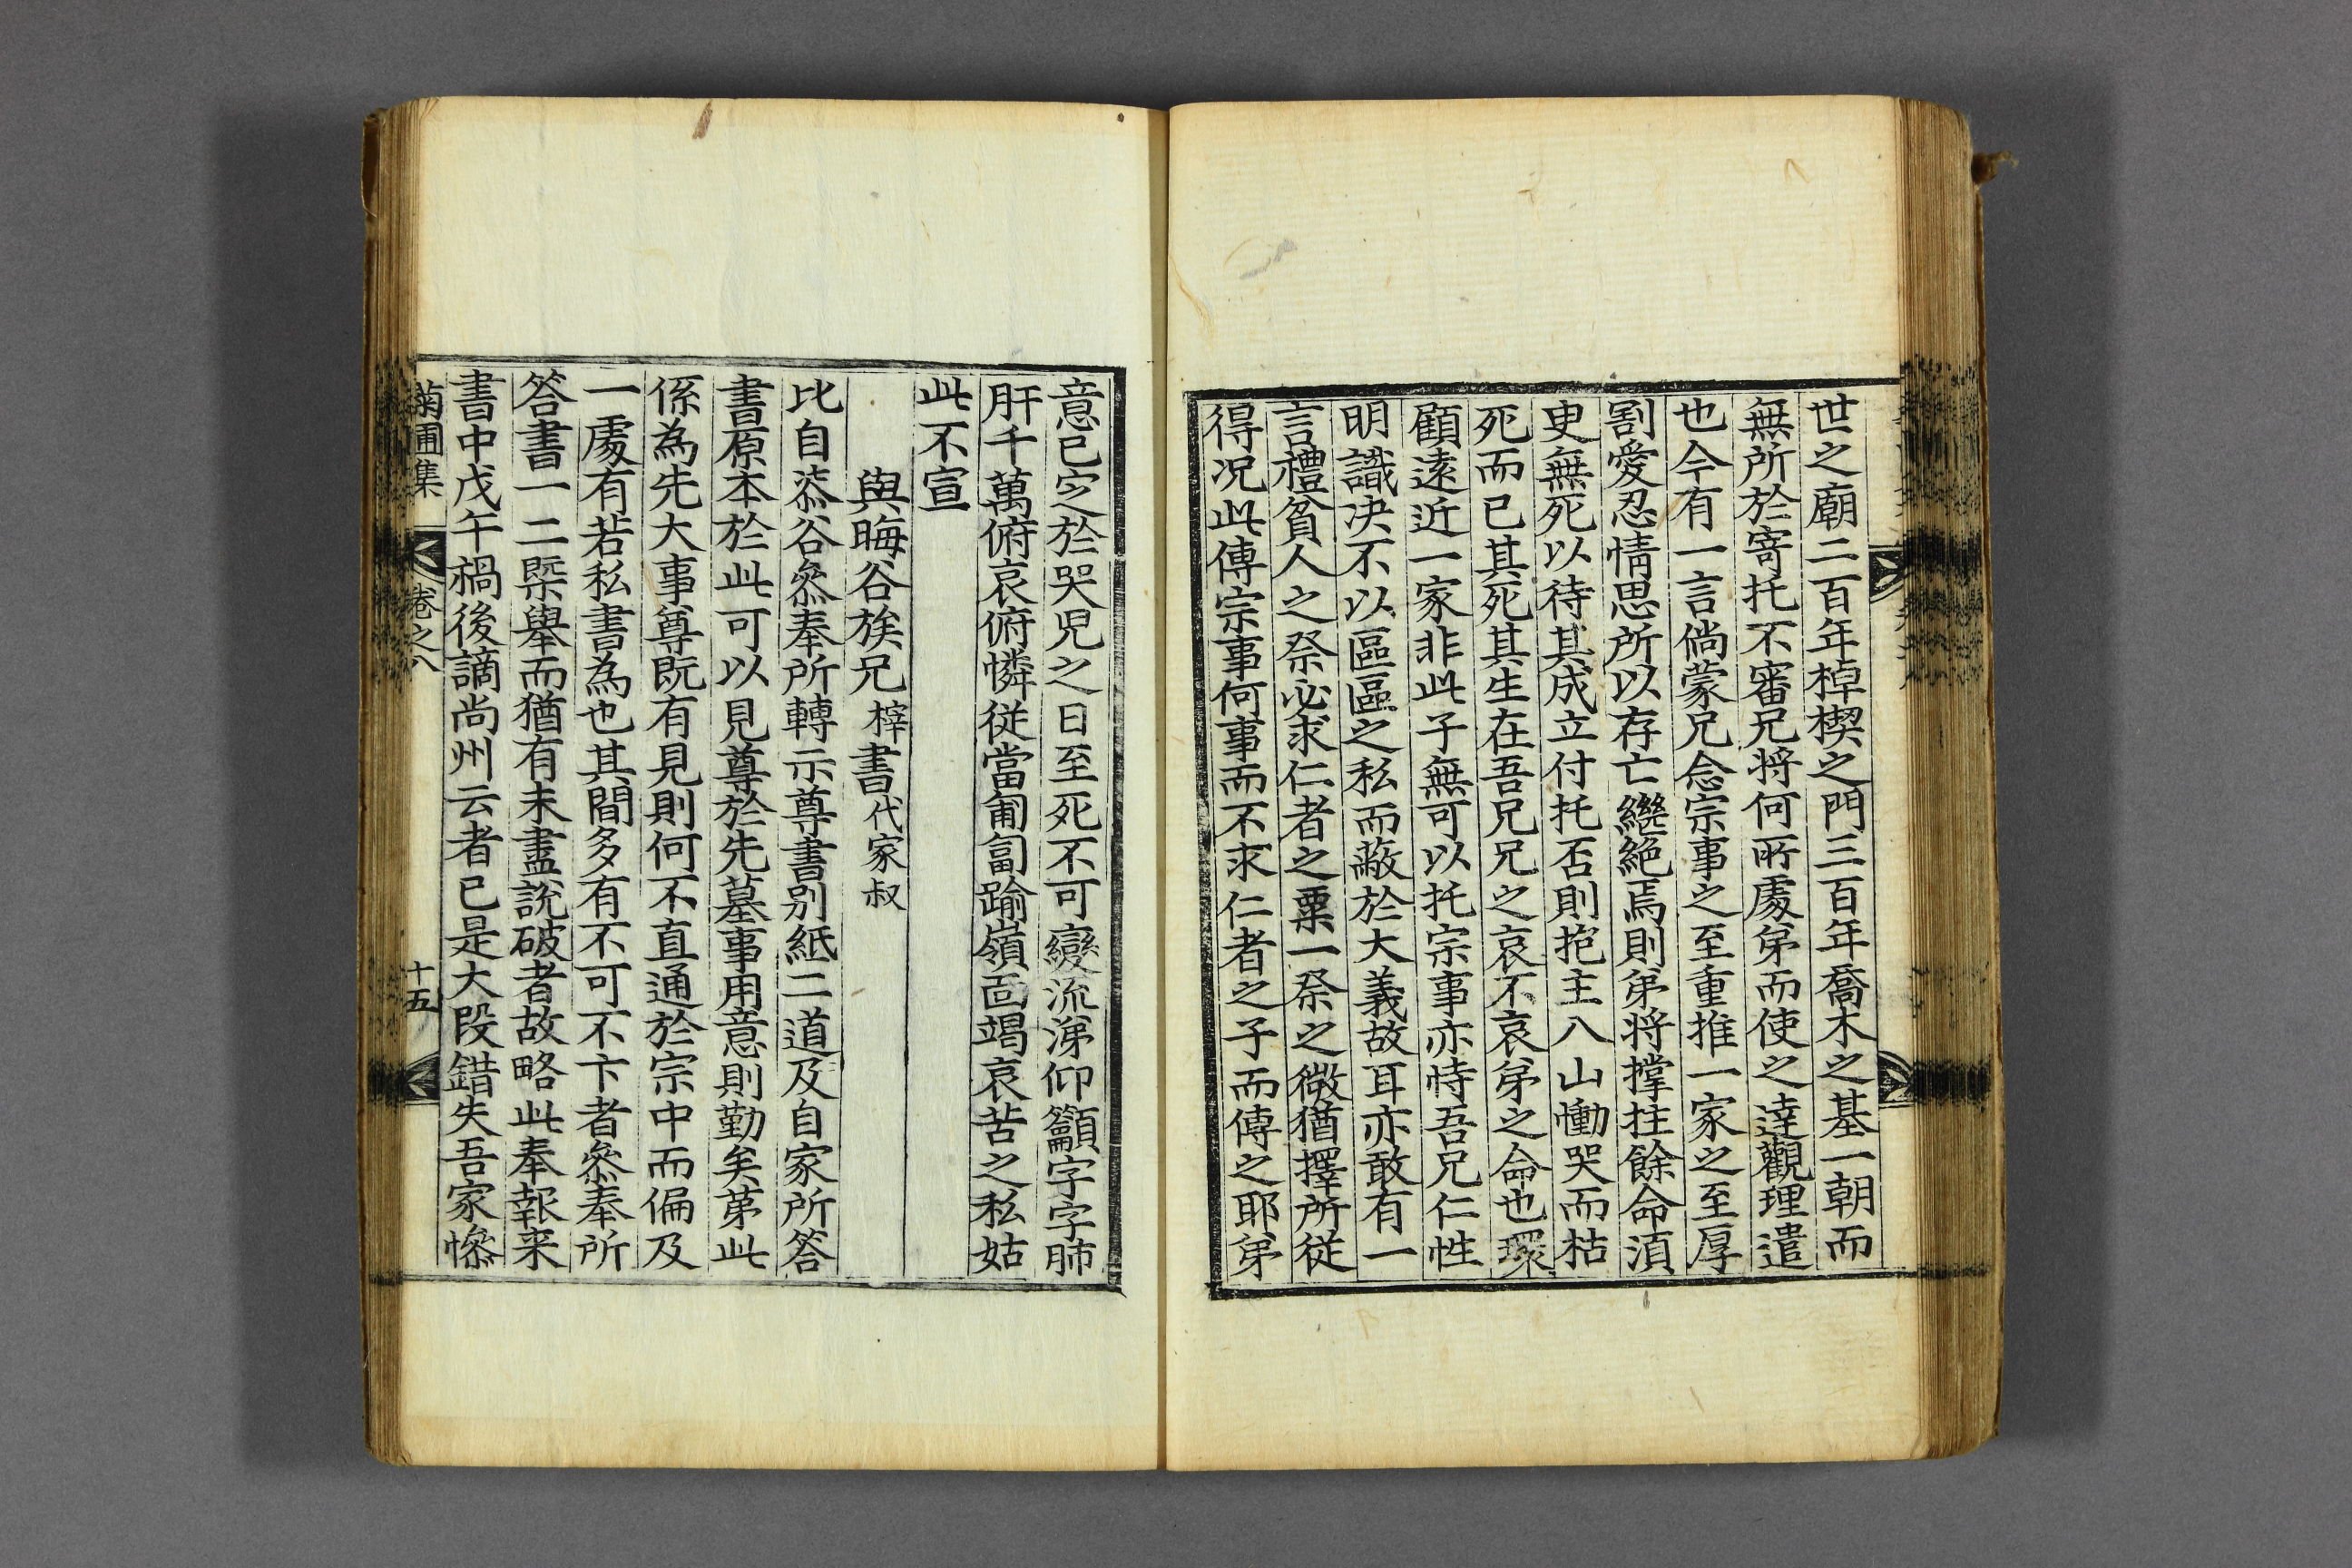 世之廟二百年棹楔之門三百年喬木之基一朝而
無所於寄托不審兄將何所處弟而使之達觀理遣
也今有一言倘蒙兄念宗事之至重推一家之至厚
割愛忍情思所以存亡繼絕焉則弟將撑拄餘命湏
臾無死以待其成立付托否則抱主入山慟哭而枯
死而已其死其生在吾兄兄之哀不哀弟之命也環
顧遠近一家非此子無可以托宗事亦恃吾兄仁性
明識决不以區區之私而蔽於大義故耳亦敢有一
言禮貧人之祭必求仁者之粟一祭之微猶擇所從
得况此傳宗事何事而不求仁者之子而傳之耶弟
意已定於哭兒之日至死不可變流涕仰籲字字肺
肝千萬俯哀俯憐從當匍匐踰嶺面竭哀苦之私姑
此不宣
與晦谷族兄梓書代家叔
比自柒谷叅奉所轉示尊書別紙二道及自家所答
書原本於此可以見尊於先墓事用意則勤矣第此
係為先大事尊既有見則何不直通於宗中而偏及
一處有若私書為也其間多有不可不卞者叅奉所
答書一二槩舉而猶有未盡說破者故略此奉報来
書中戊午禍後謫尚州云者已是大段錯失吾家慘
菊圃集 卷之八 十五